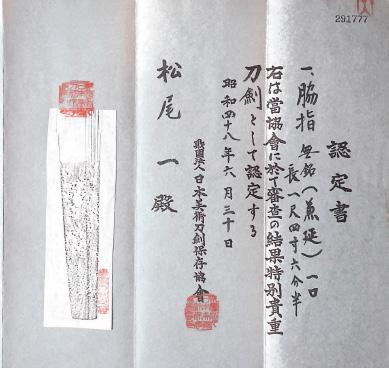 291777
認定書
一、脇指 無銘(兼延) 一口
長一尺四寸六分半
右は當協會に於て審査の結果特別貴重
刀劍として認定する
昭和四十八年六月三十日
財團法人日本美術刀劍保存協會
松尾 一 殿